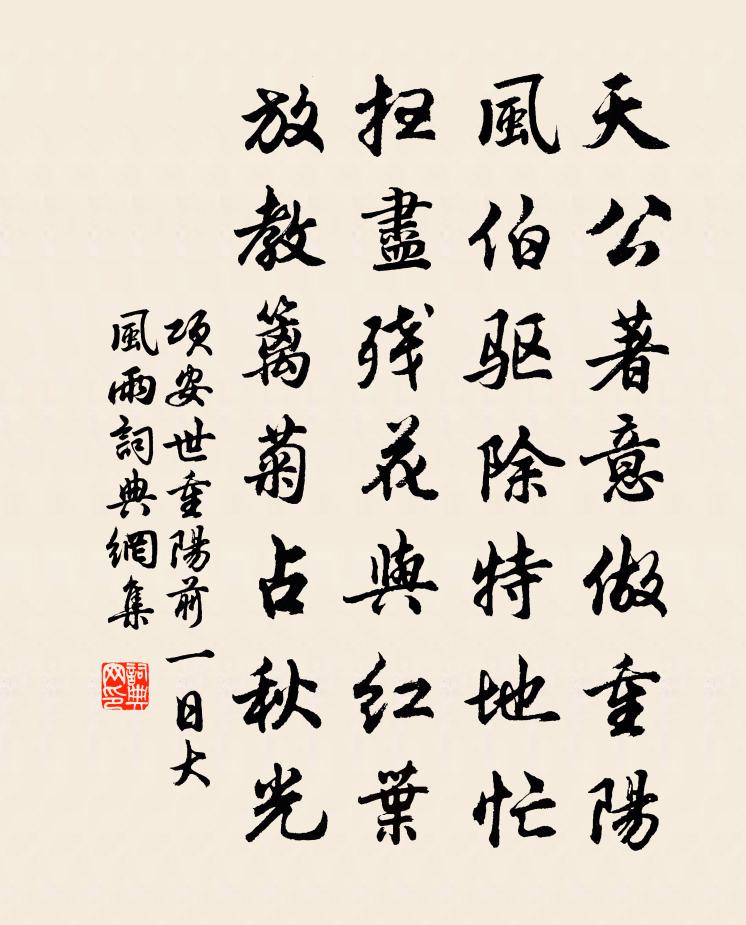 天公著意做重陽
風伯驱除特地忙
扫盡残花與红葉
放教篱菊占秋光
项安世重陽前一日大
風雨詞典網集
詞典網印